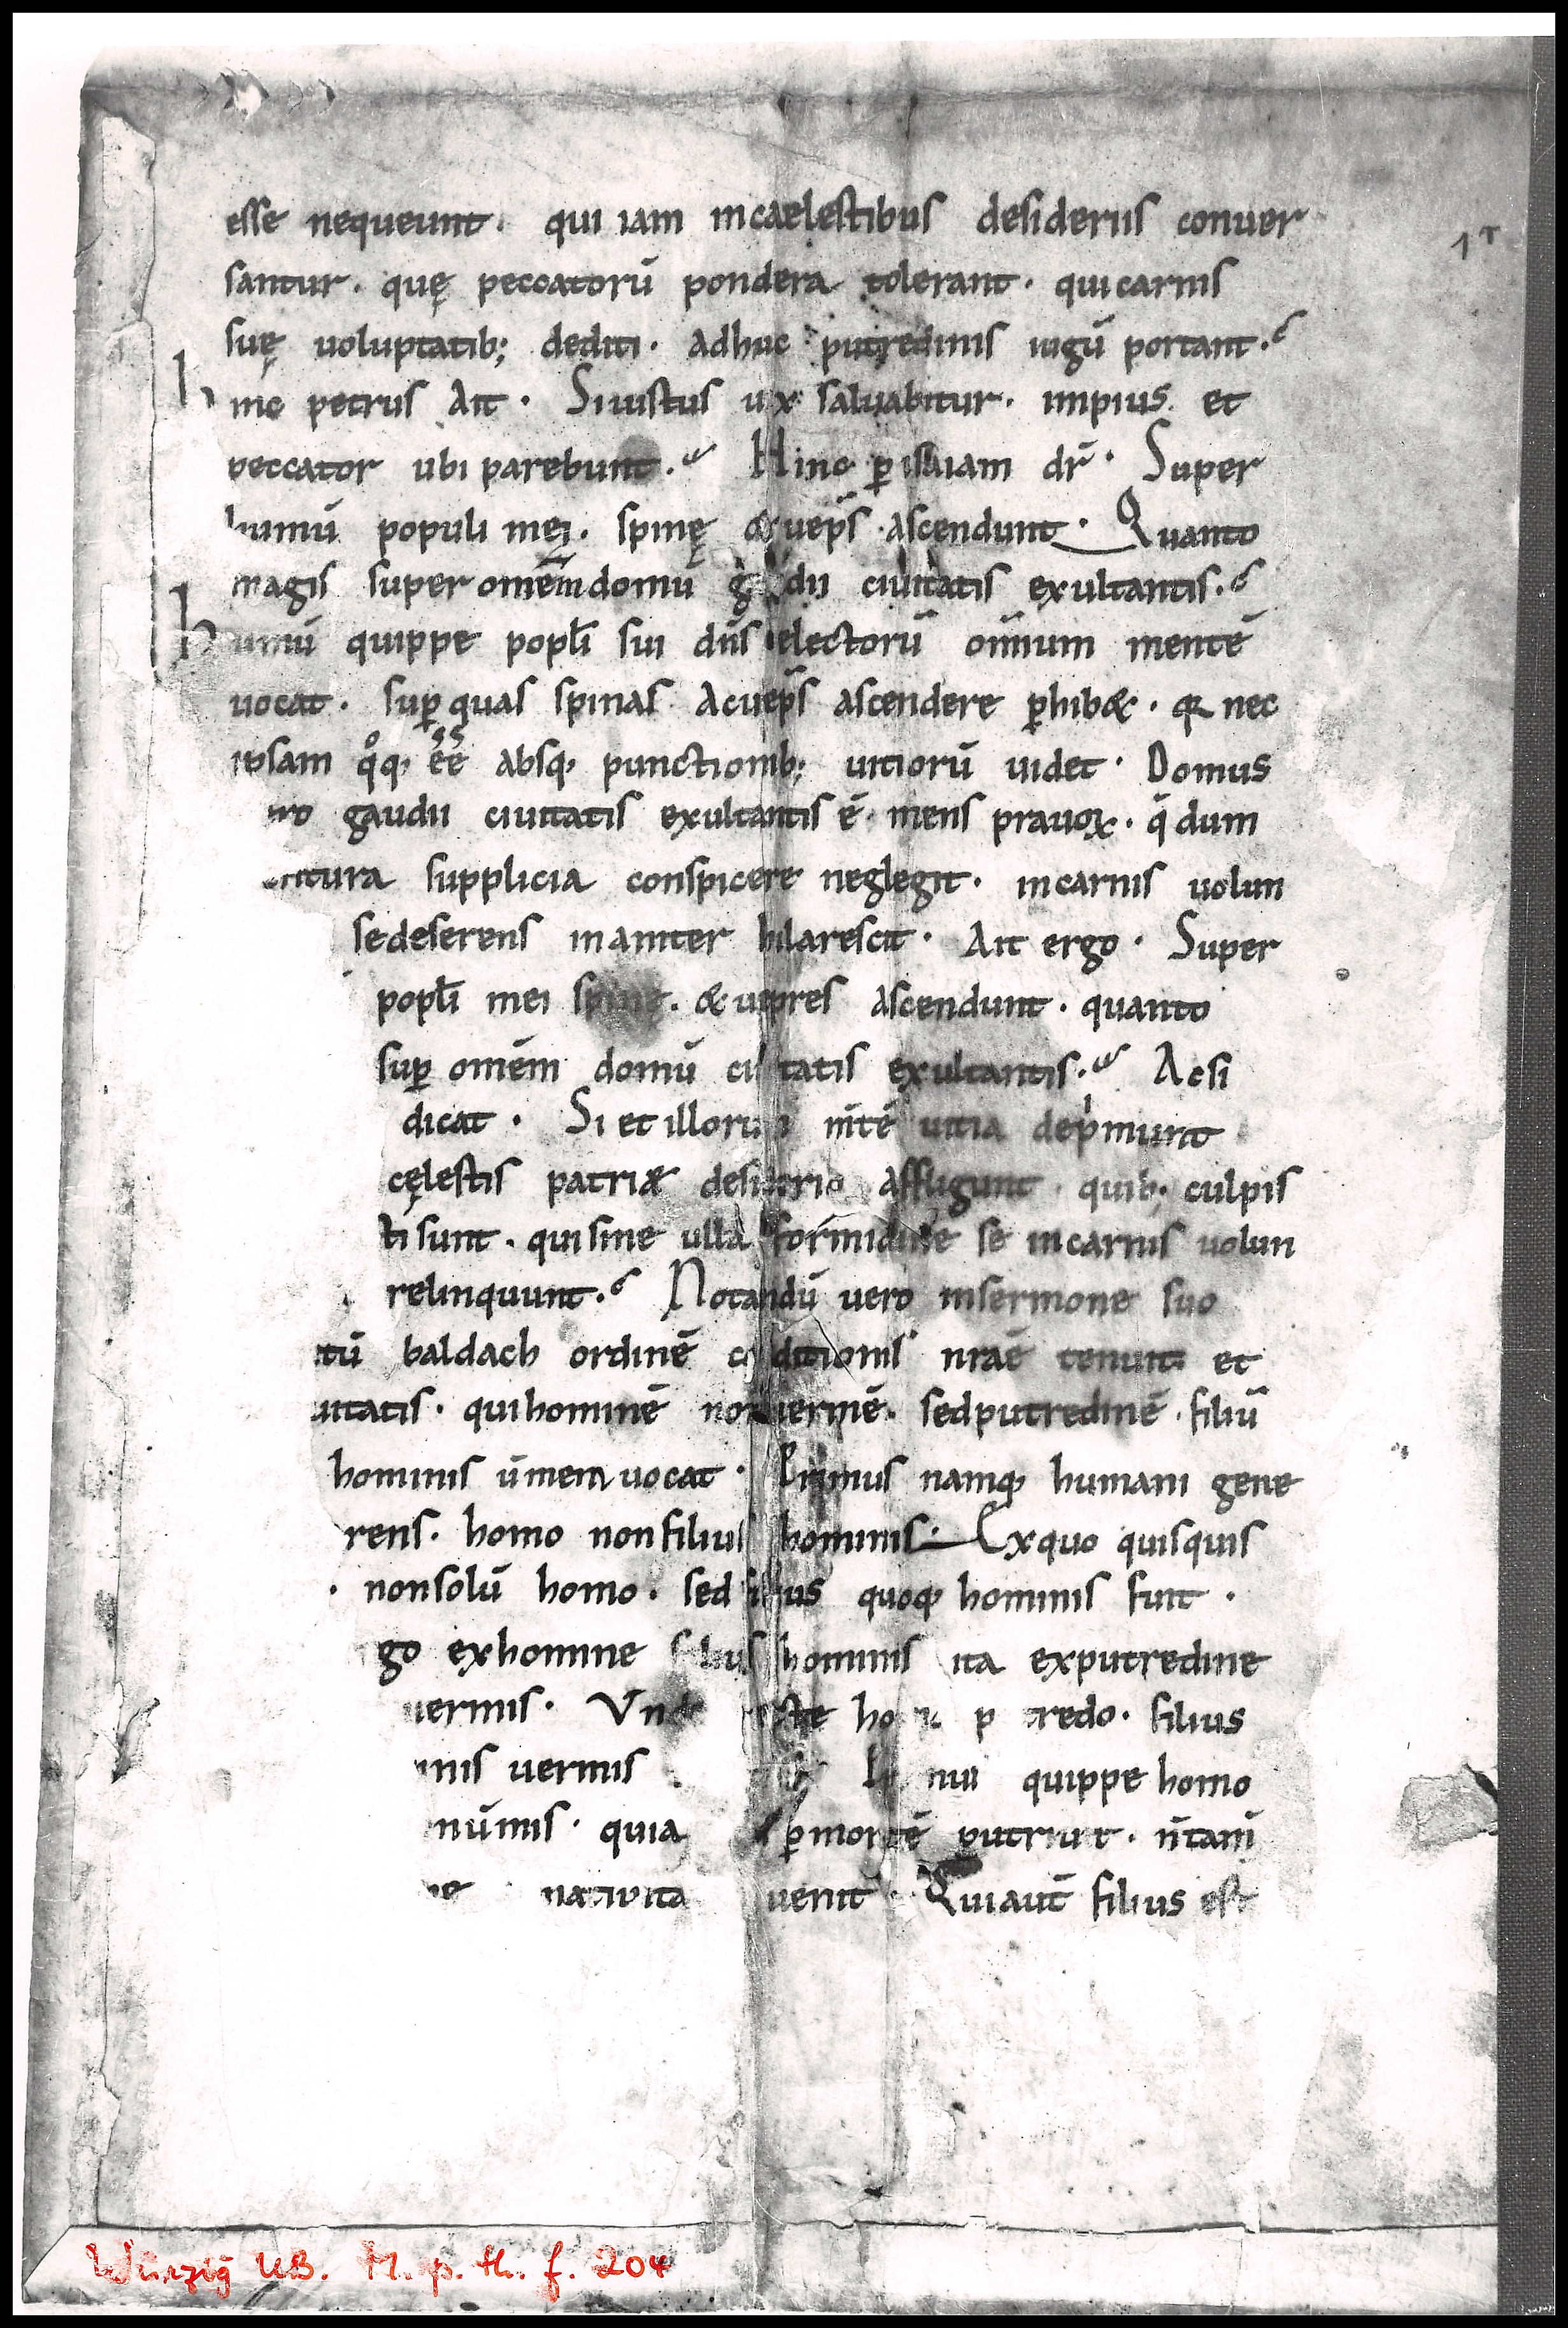 esse nequeunt· qui iam incaelestibus desideriis conuer
1r
santur· quę peccatorū pondera tolerant· quicarnis
suę uoluptatib; dediti· adhuc putredinis iugū portant·
hinc petrus ait· Siiustus uix saluabitur· impius et
peccator ubi parebunt· Hinc ꝑ isaiam dr̄· Super
humū populi mei· spinę & uep̄s ascendunt· Quanto
magis super omēm domū gaudii ciuitatis exultantis·
humū quippe popl̄i sui dn̄s electorū omīum mentē
uocat· suꝑ quas spinas acuep̄s ascendere ꝑhib&· quia nec
ipsam qͦq, ēē absq, punctionib; uitiorū uidet· Domus
uero gaudii ciuitatis exultantis ē· mens prauoꝝ· q̄ dum
uentura supplicia conspicere neglegit· incarnis uolun
sedeserens inaniter hilarescit· Ait ergo· Super
popl̄i mei spinę· & uepres ascendunt· quanto
suꝑ omēm domū ciuitatis exultantis· Acsi
dicat· Si et illorum m̄tē uitia dep̍munt
cęlestis patriæ desiderio affligunt· quib; culpis
ti sunt· quisine ulla formidine se incarnis uolun
relinquunt· Notandū uero insermone suo
tū baldach ordinē conditionis nr̄aē tenuit et
uitatis· quihominē non uermē· sedputredinē· filiū
hominis ūmem uocat· Primus namq, humani gene
rens· homo nonfilius hominis· Exquo quisquis
· nonsolū homo· sed filius quoq, hominis fuit·
go exhomine filius hominis ita exputredine
uermis· Vnde homo putredo· filius
inis uermis quippe homo
nūmis· quia ꝑmortē putruit· n̄tam̄
ne natiuita uenit· Quiaut̄ filius est
Würzbg UB. M. p. th. f. 204